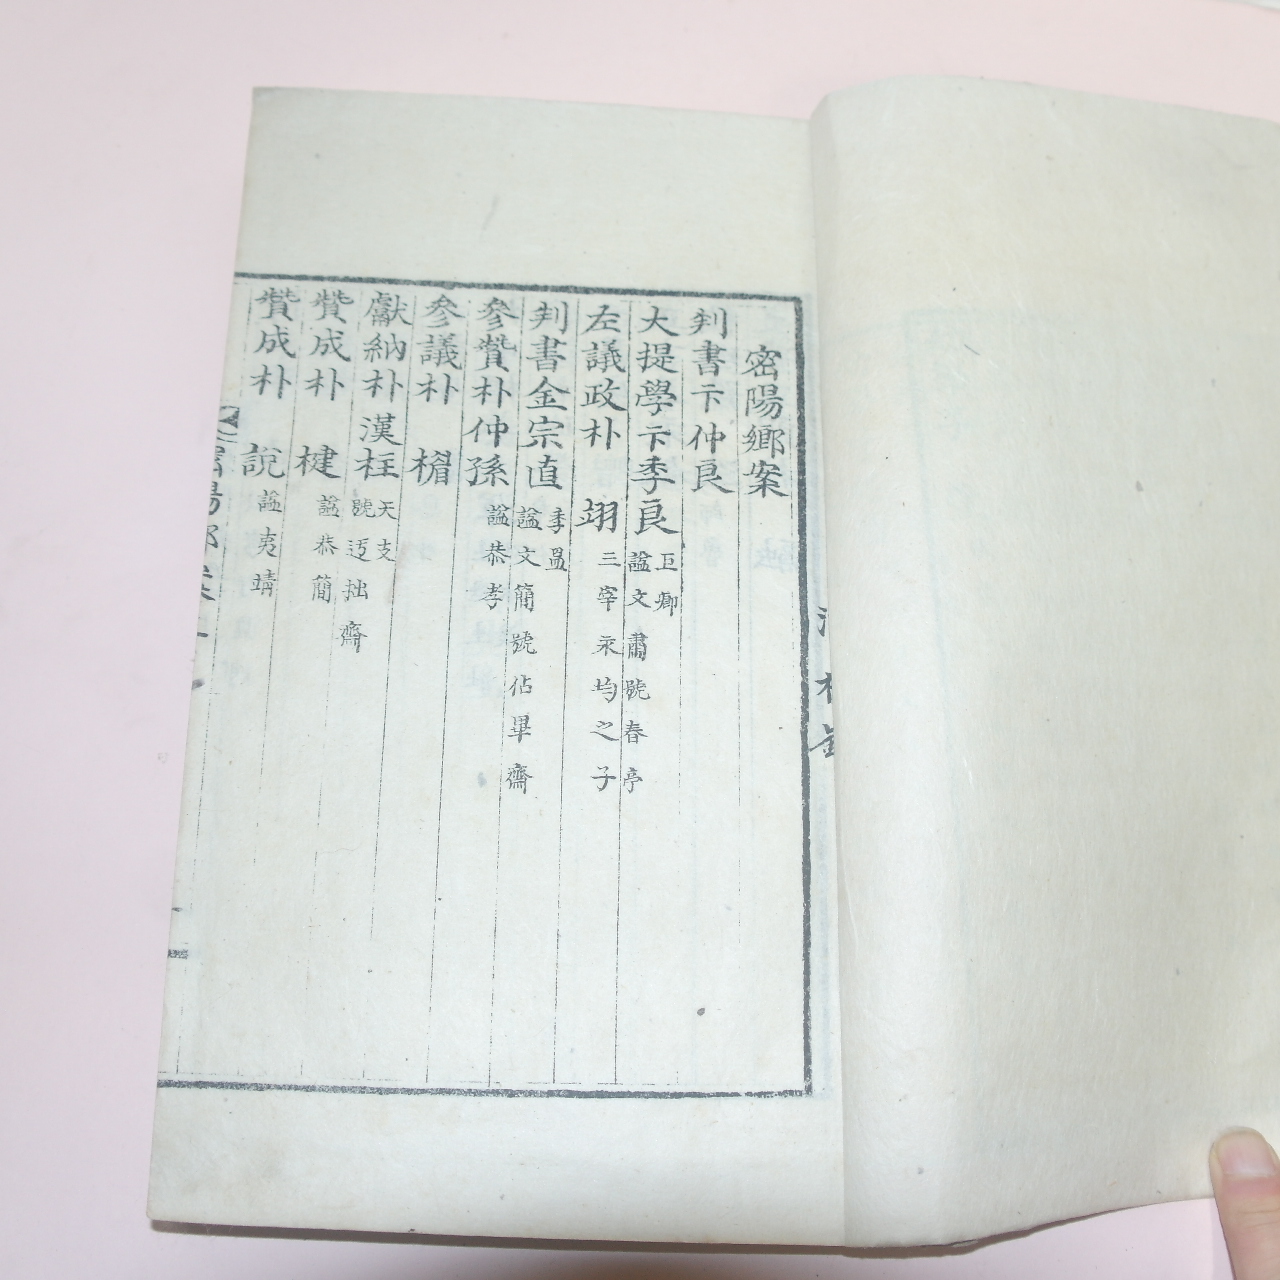 密陽鄕案
判書卞仲良
大提學卞季良 巨卿 謚文肅號春亭
左議政朴 翊 三宰永均之子
判書金宗直 季昷 謚文簡號佔畢齋
參贊朴仲孫 謚恭孝
參議朴 楣
獻納朴漢柱 天支 號迃拙齋
贊成朴 楗 謚恭簡
贊成朴 說 謚夷靖
密陽鄕案